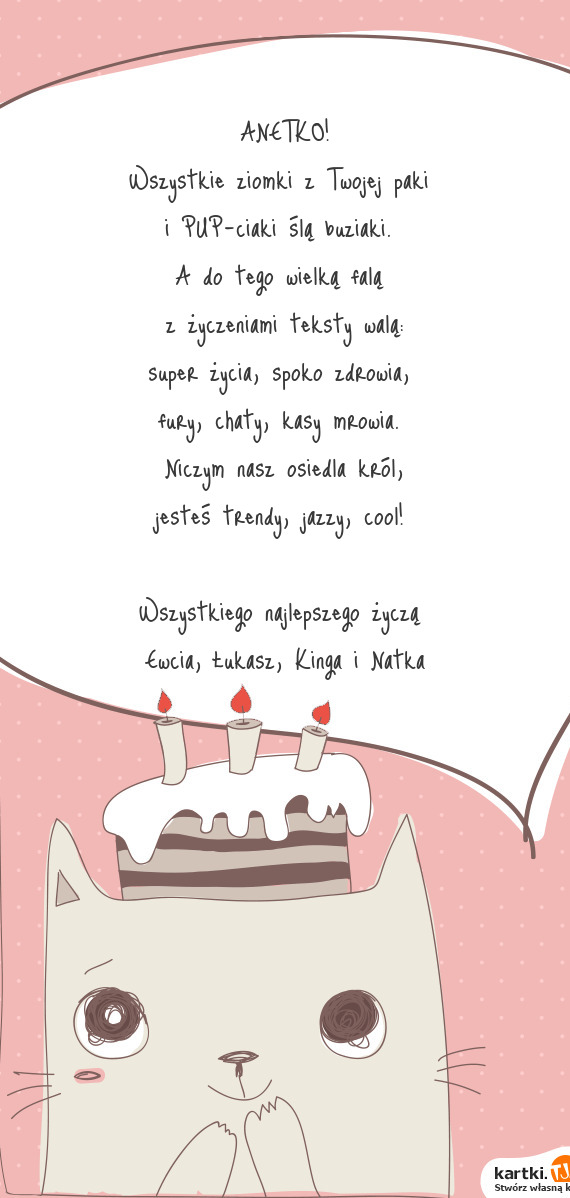 ANETKO!
Wszystkie ziomki z Twojej paki
i PUP-ciaki ślą buziaki.
A do tego wielką falą
z życzeniami teksty walą:
super życia, spoko zdrowia,
fury, chaty, kasy mrowia.
Niczym nasz osiedla król,
jesteś trendy, jazzy, cool!
Wszystkiego najlepszego życzą
Ewcia, Łukasz, Kinga i Natka
kartki.TJ
Stwórz własną k